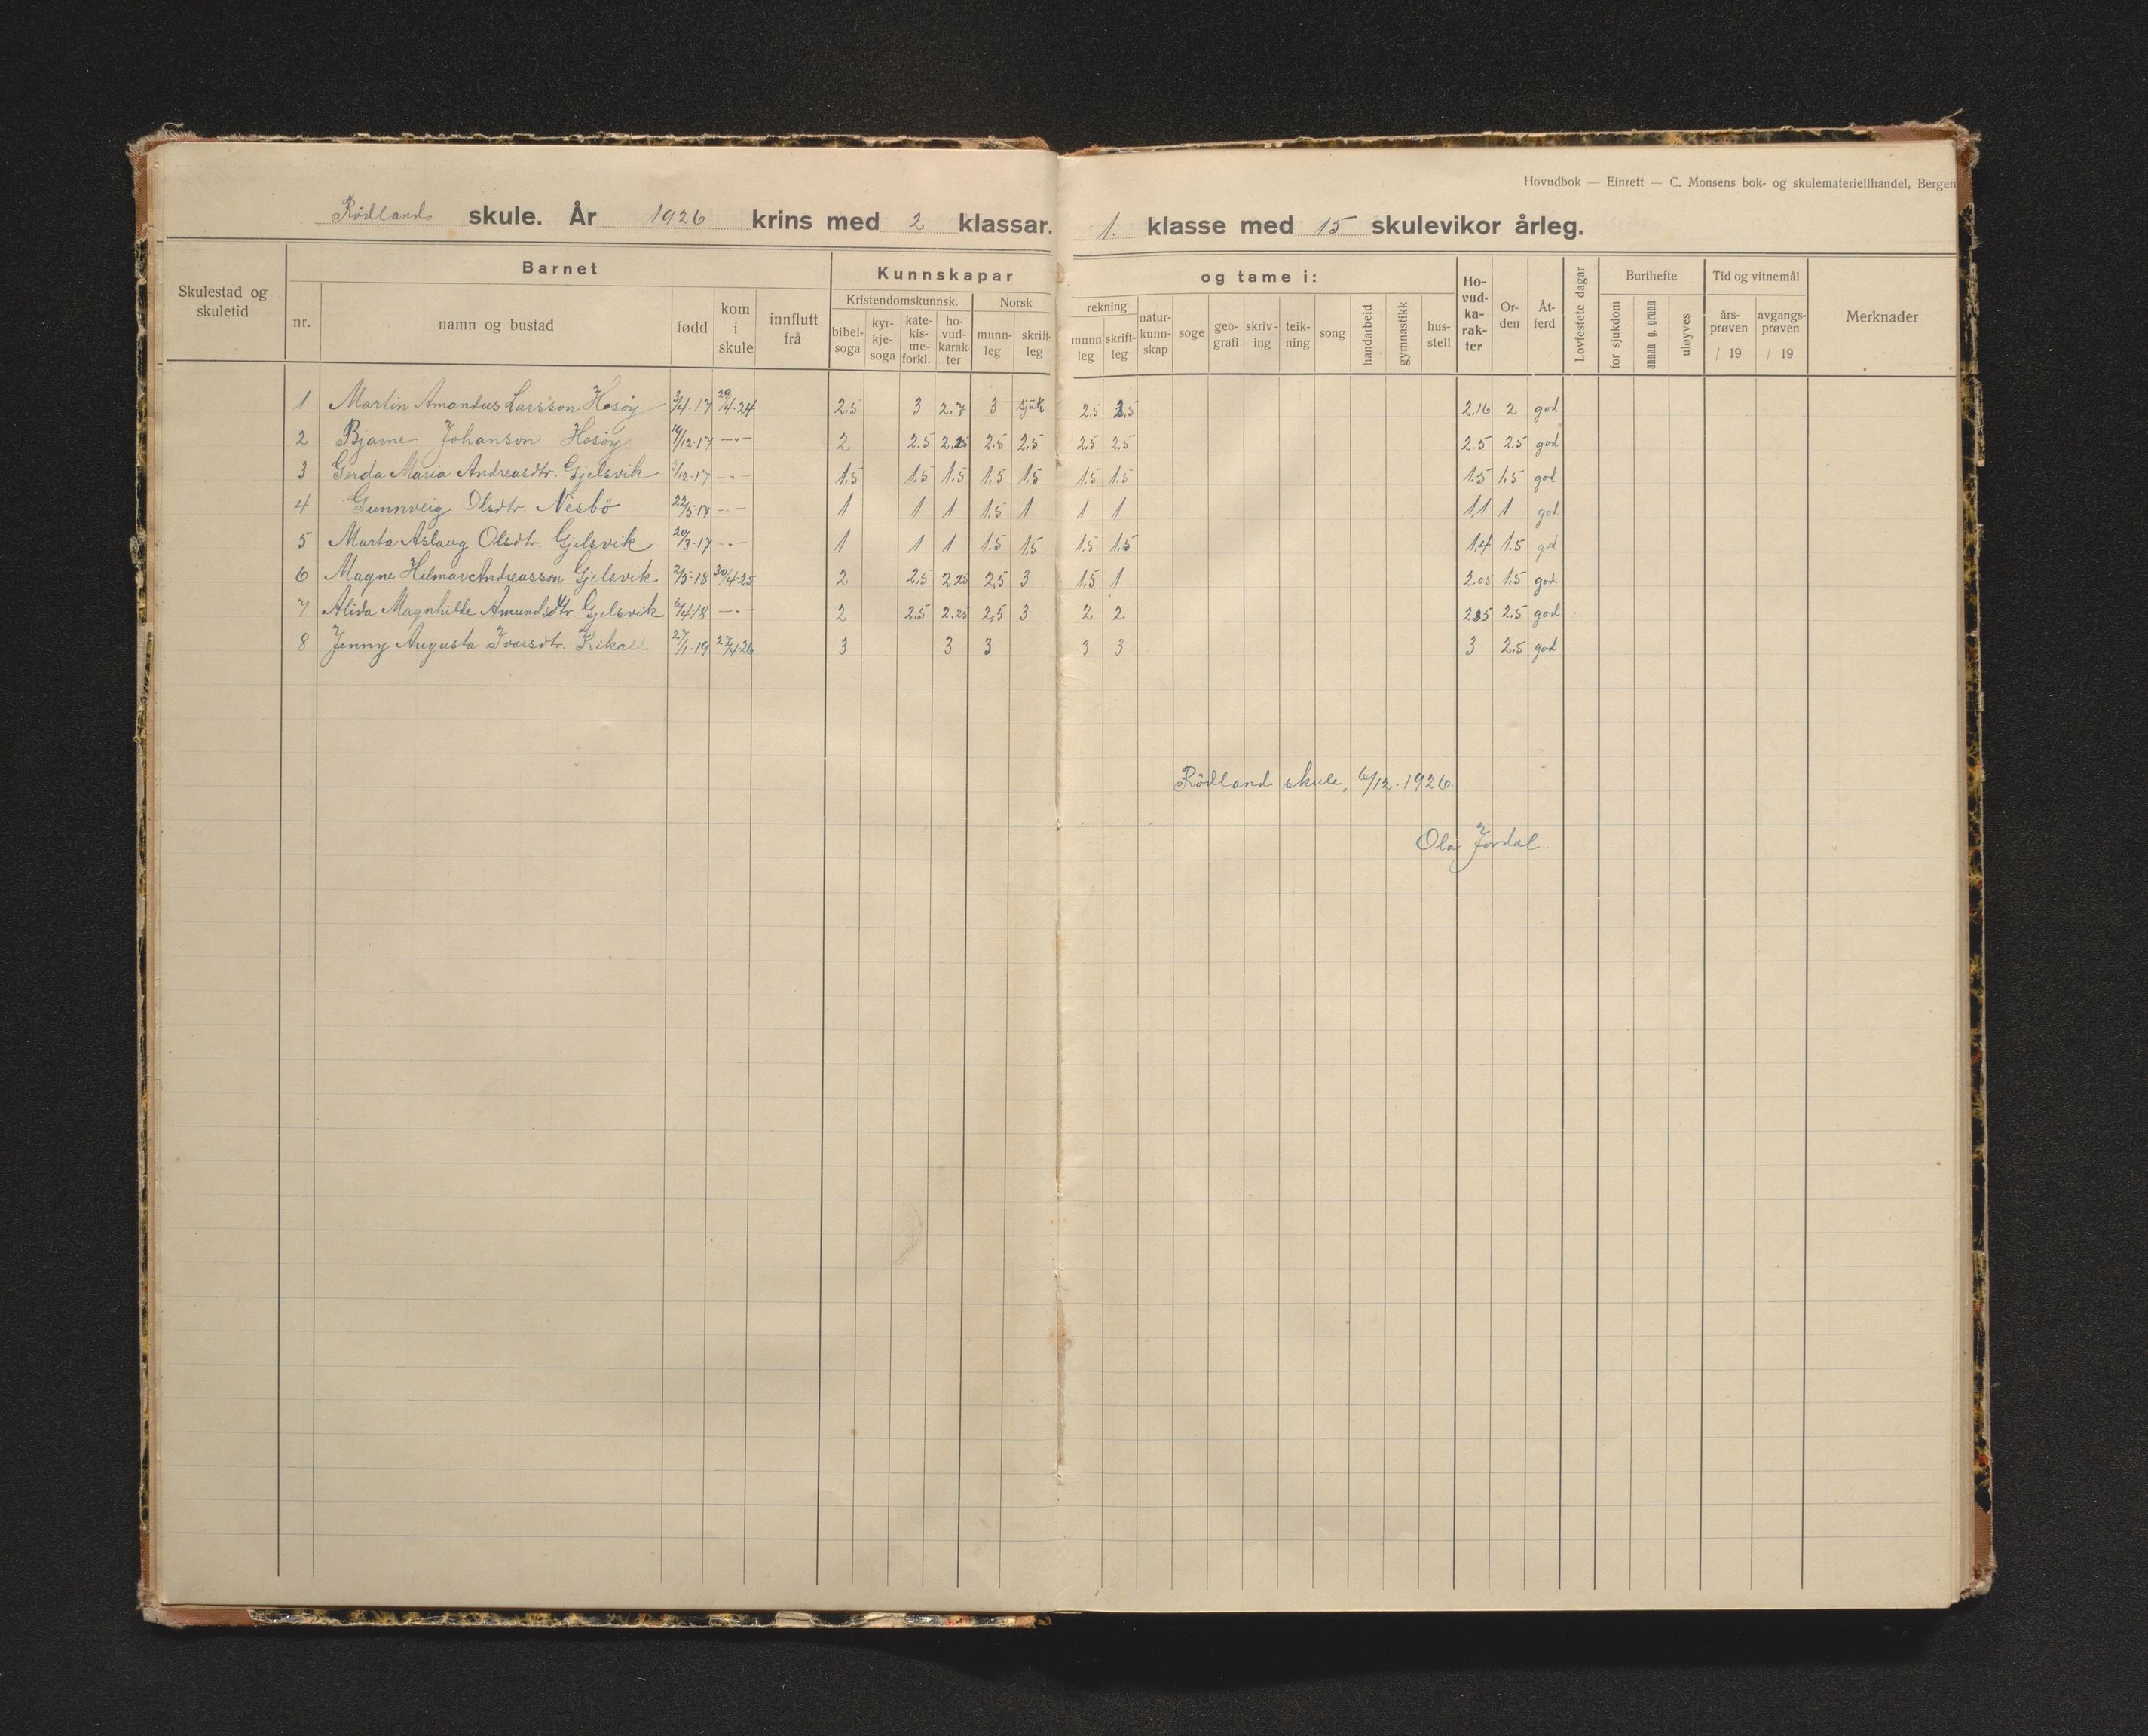 Hovudbok — Einrett — C. Monsens bok- og skulemateriellhandel, Bergen
Rödlands skule. År 1926 krins med 2 klassar. 1. klasse med 15 skulevikor årleg.
Skulestad og skuletid
Barnet
nr. namn og bustad fødd kom i skule innflutt frå
Kunnskapar og tame i:
Kristendomskunnsk. Norsk rekning
bibel-soga kyr-kje-soga kate-kis-me-forkl. ho-vud-karak-ter munn-leg skrift-leg munn leg skrift-leg natur-kunn-skap soge geo-grafi skriv-ing teik-ning song handarbeid gymnastikk hus-stell
Ho-vud-ka-rak-ter Or-den Åt-ferd Lovfestete dagar
Burthefte
for sjukdom annan g. grunn uløyves
Tid og vitnemål
års-prøven / 19 avgangs-prøven / 19
Merknader
1 Martin Amandus Larsson Hosøy 3/4.17 29/4.24 2.5 3 2.7 3 sjuk 2.5 2.5 2.16 2 god
2 Bjarne Johanson Hosøy 19/12.17 —"— 2 2.5 2.25 2.5 2.5 2.5 2.5 2.5 2.5 god
3 Gerda Maria Andreasdtr. Gjelsvik /12.17 —"— 1.5 1.5 1.5 1.5 1.5 1.5 1.5 1.5 1.5 god
4 Gunnveig Olsdtr. Nesbö 22/5.17 —"— 1 1 1 1.5 1 1 1 1.1 1 god
5 Marta Aslaug Olsdtr. Gjelsvik 20/3.17 —"— 1 1 1 1.5 1.5 1.5 1.5 1.4 1.5 god
6 Magne Hilmar Andreasson Gjelsvik 2/5.18 30/4.25 2 2.5 2.25 2.5 3 1.5 1 2.05 1.5 god
7 Alida Magnhilde Åmundsdtr. Gjelsvik 6/4.18 —"— 2 2.5 2.25 2.5 3 2 2 2.5 god
8 Jenny Augusta Ivarsdtr. Kikall 27/1.19 27/4.26 3 3 3 3 3 3 2.5 god
Rödland skule, 6/12.1926.
Ola Jordal.